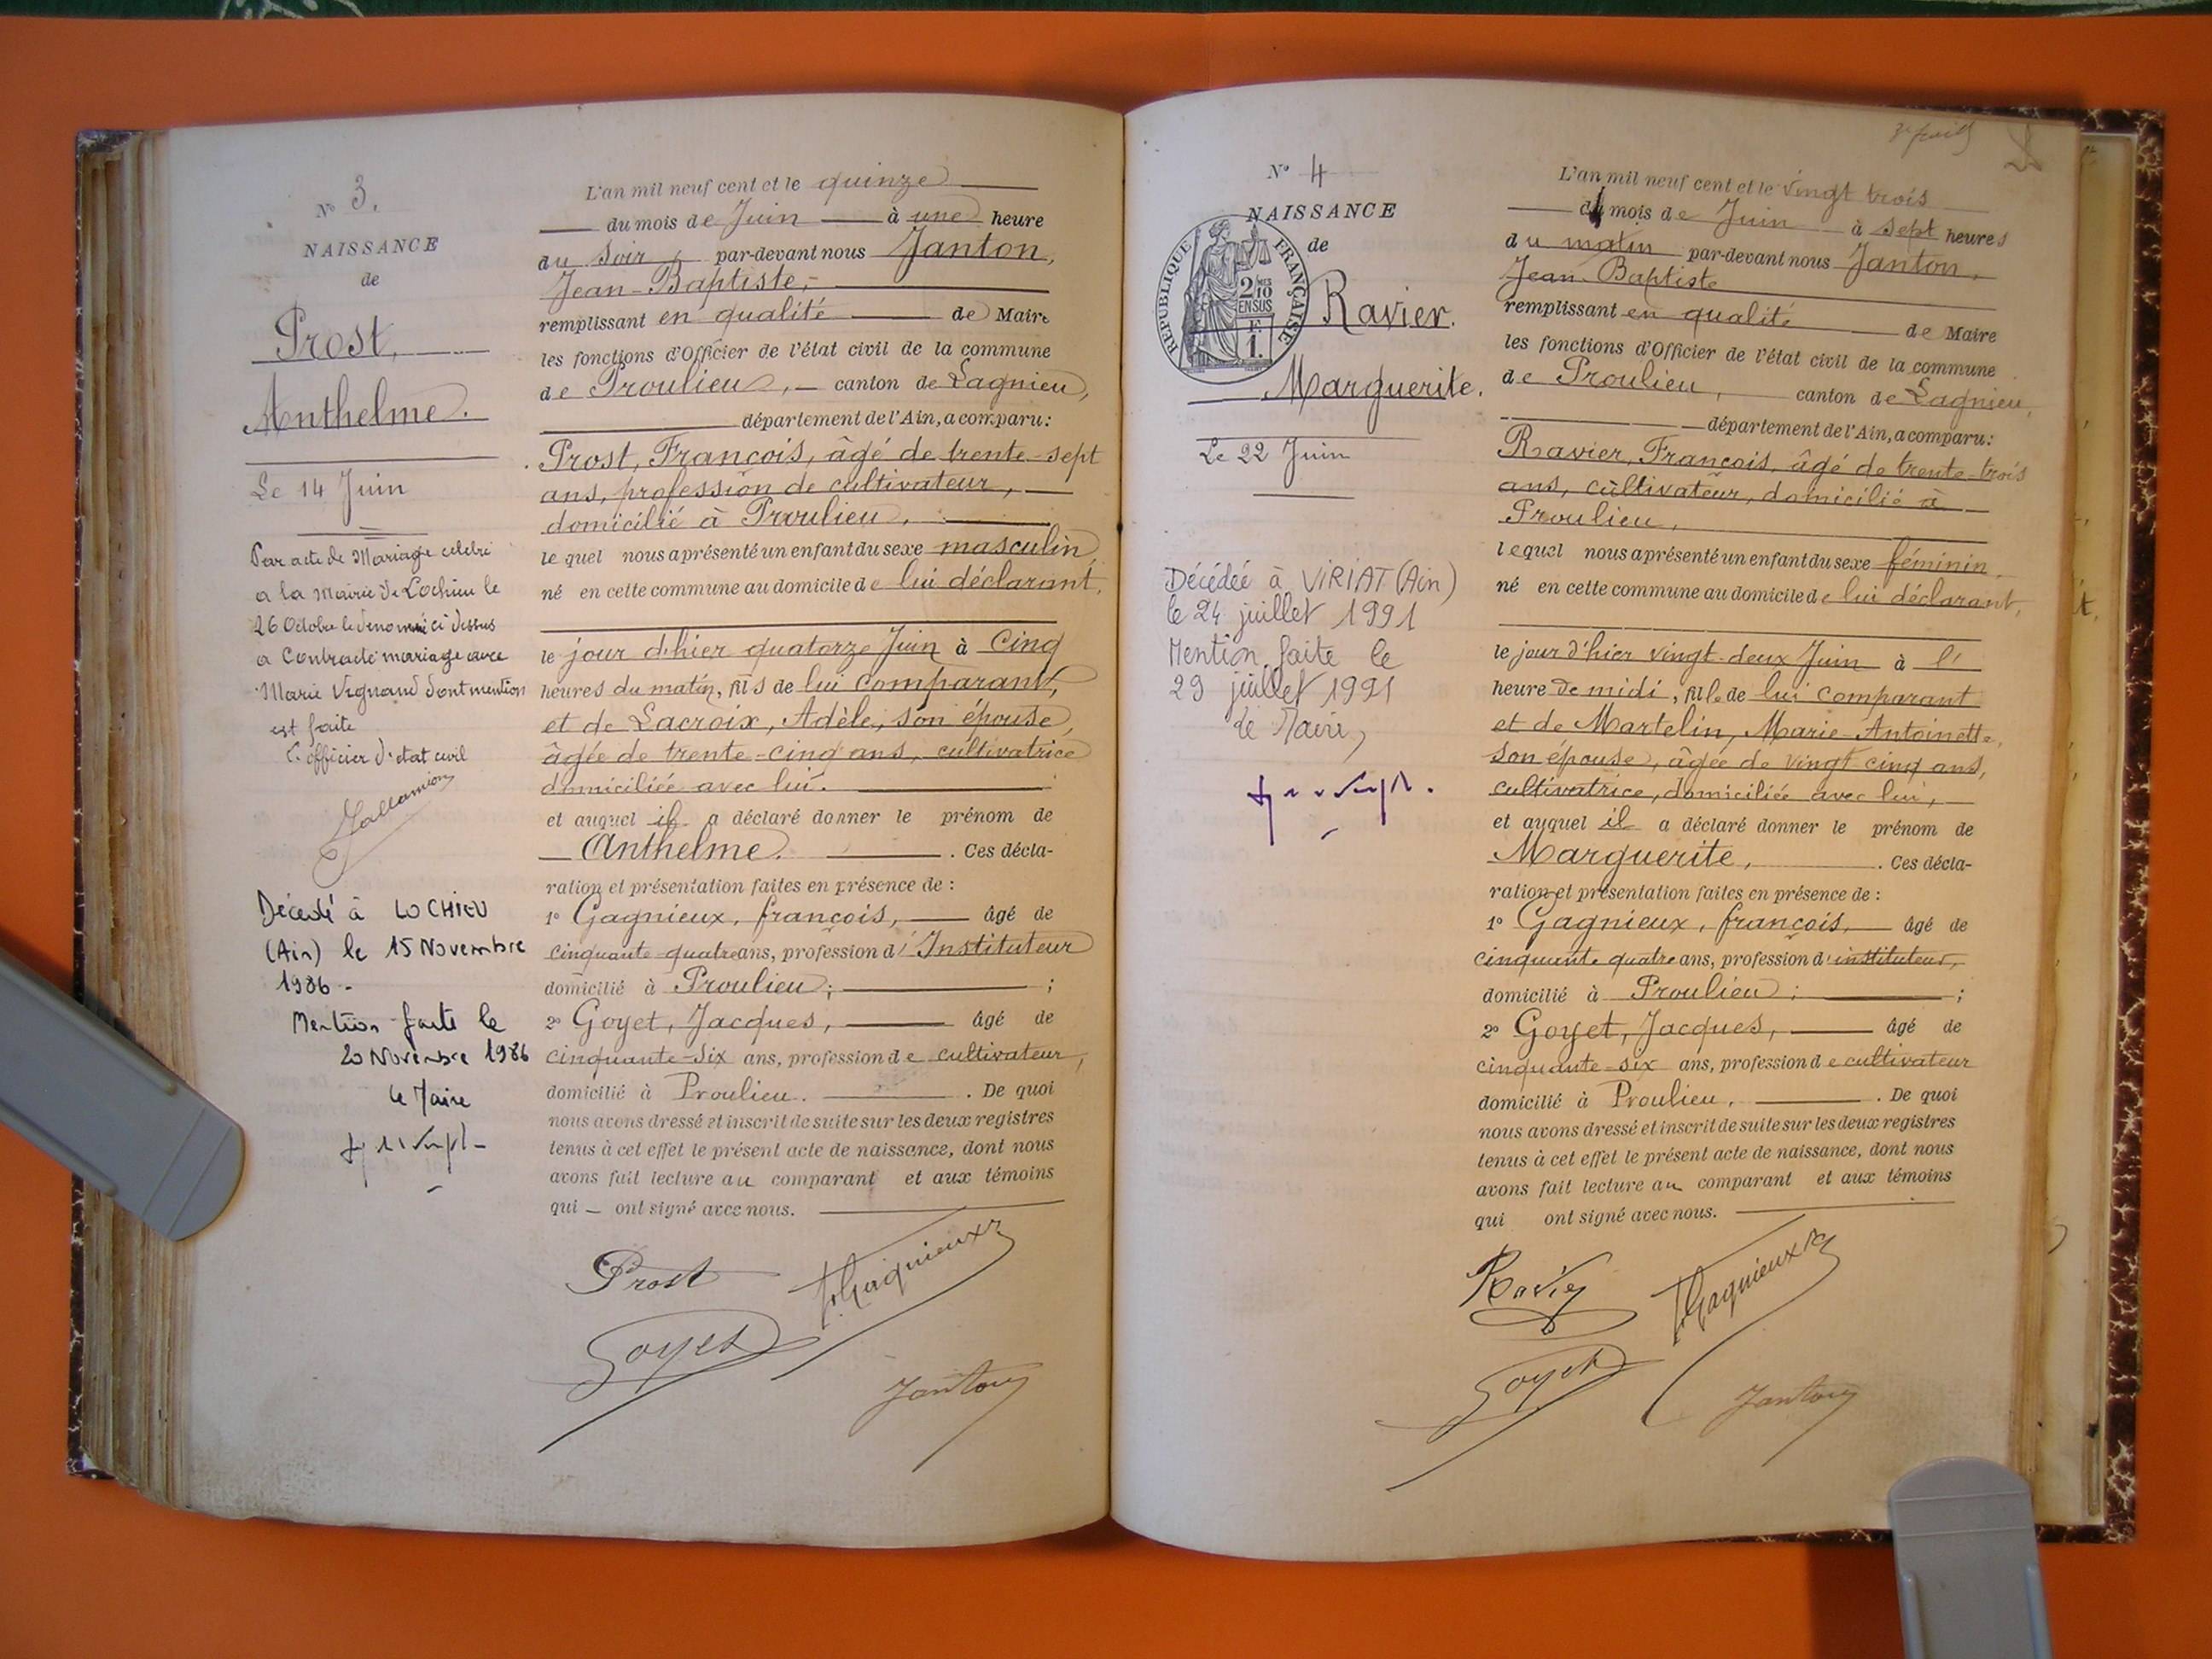 N° 3.
NAISSANCE
de
Prost,
Anthelme.
Le 14 Juin
Par acte de Mariage celebré
a la Mairie de Lochieu le
26 Octobre le dénommé ci dessus
a Contracté mariage avec
Marie Vignand dont mention
est faite
L'officier d'etat civil
Décédé à LOCHIEU
(Ain) le 15 Novembre
1986 -
Mention faite le
20 Novembre 1986
le Maire
L'an mil neuf cent et le quinze
du mois de Juin à une heure
du soir, par-devant nous Janton,
Jean-Baptiste,
remplissant en qualité de Maire
les fonctions d'Officier de l'état civil de la commune
de Proulieu, canton de Lagnieu,
département de l'Ain, a comparu:
Prost, François, âgé de trente-sept
ans, profession de cultivateur,
domicilié à Proulieu,
le quel nous a présenté un enfant du sexe masculin,
né en cette commune au domicile de lui déclarant,
le jour d'hier quatorze Juin à Cinq
heures du matin, fils de lui comparant,
et de Lacroix, Adèle, son épouse,
âgée de trente-cinq ans, cultivatrice
domiciliée avec lui.
et auquel il a déclaré donner le prénom de
Anthelme. . Ces décla-
ration et présentation faites en présence de :
1° Gagnieux, françois, âgé de
cinquante quatre ans, profession d'Instituteur
domicilié à Proulieu; ;
2° Goyet, Jacques, âgé de
cinquante-six ans, profession de cultivateur,
domicilié à Proulieu. . De quoi
nous avons dressé et inscrit de suite sur les deux registres
tenus à cet effet le présent acte de naissance, dont nous
avons fait lecture au comparant et aux témoins
qui — ont signé avec nous.
Prost
f. Gagnieux
Goyet
Janton
N° 4
NAISSANCE
de
RÉPUBLIQUE FRANÇAISE
2/10 EN SUS
F
1.
Ravier.
Marguerite.
Le 22 Juin
Décédée à VIRIAT (Ain)
le 24 juillet 1991
Mention faite le
29 juillet 1991
le Maire,
L'an mil neuf cent et le vingt trois
du mois de Juin à sept heures
du matin par-devant nous Janton,
Jean-Baptiste
remplissant en qualité de Maire
les fonctions d'Officier de l'état civil de la commune
de Proulieu, canton de Lagnieu,
département de l'Ain, a comparu:
Ravier, François, âgé de trente-trois
ans, cultivateur, domicilié à
Proulieu,
lequel nous a présenté un enfant du sexe féminin,
né en cette commune au domicile de lui déclarant,
le jour d'hier vingt-deux Juin à l'
heure de midi, fille de lui comparant
et de Martelin, Marie-Antoinette,
son épouse, âgée de vingt-cinq ans,
cultivatrice, domiciliée avec lui,
et auquel il a déclaré donner le prénom de
Marguerite, . Ces décla-
ration et présentation faites en présence de :
1° Gagnieux, françois, âgé de
cinquante quatre ans, profession d'instituteur,
domicilié à Proulieu; ;
2° Goyet, Jacques, âgé de
cinquante-six ans, profession de cultivateur
domicilié à Proulieu, . De quoi
nous avons dressé et inscrit de suite sur les deux registres
tenus à cet effet le présent acte de naissance, dont nous
avons fait lecture au comparant et aux témoins
qui ont signé avec nous.
Ravier
f. Gagnieux
Goyet
Janton